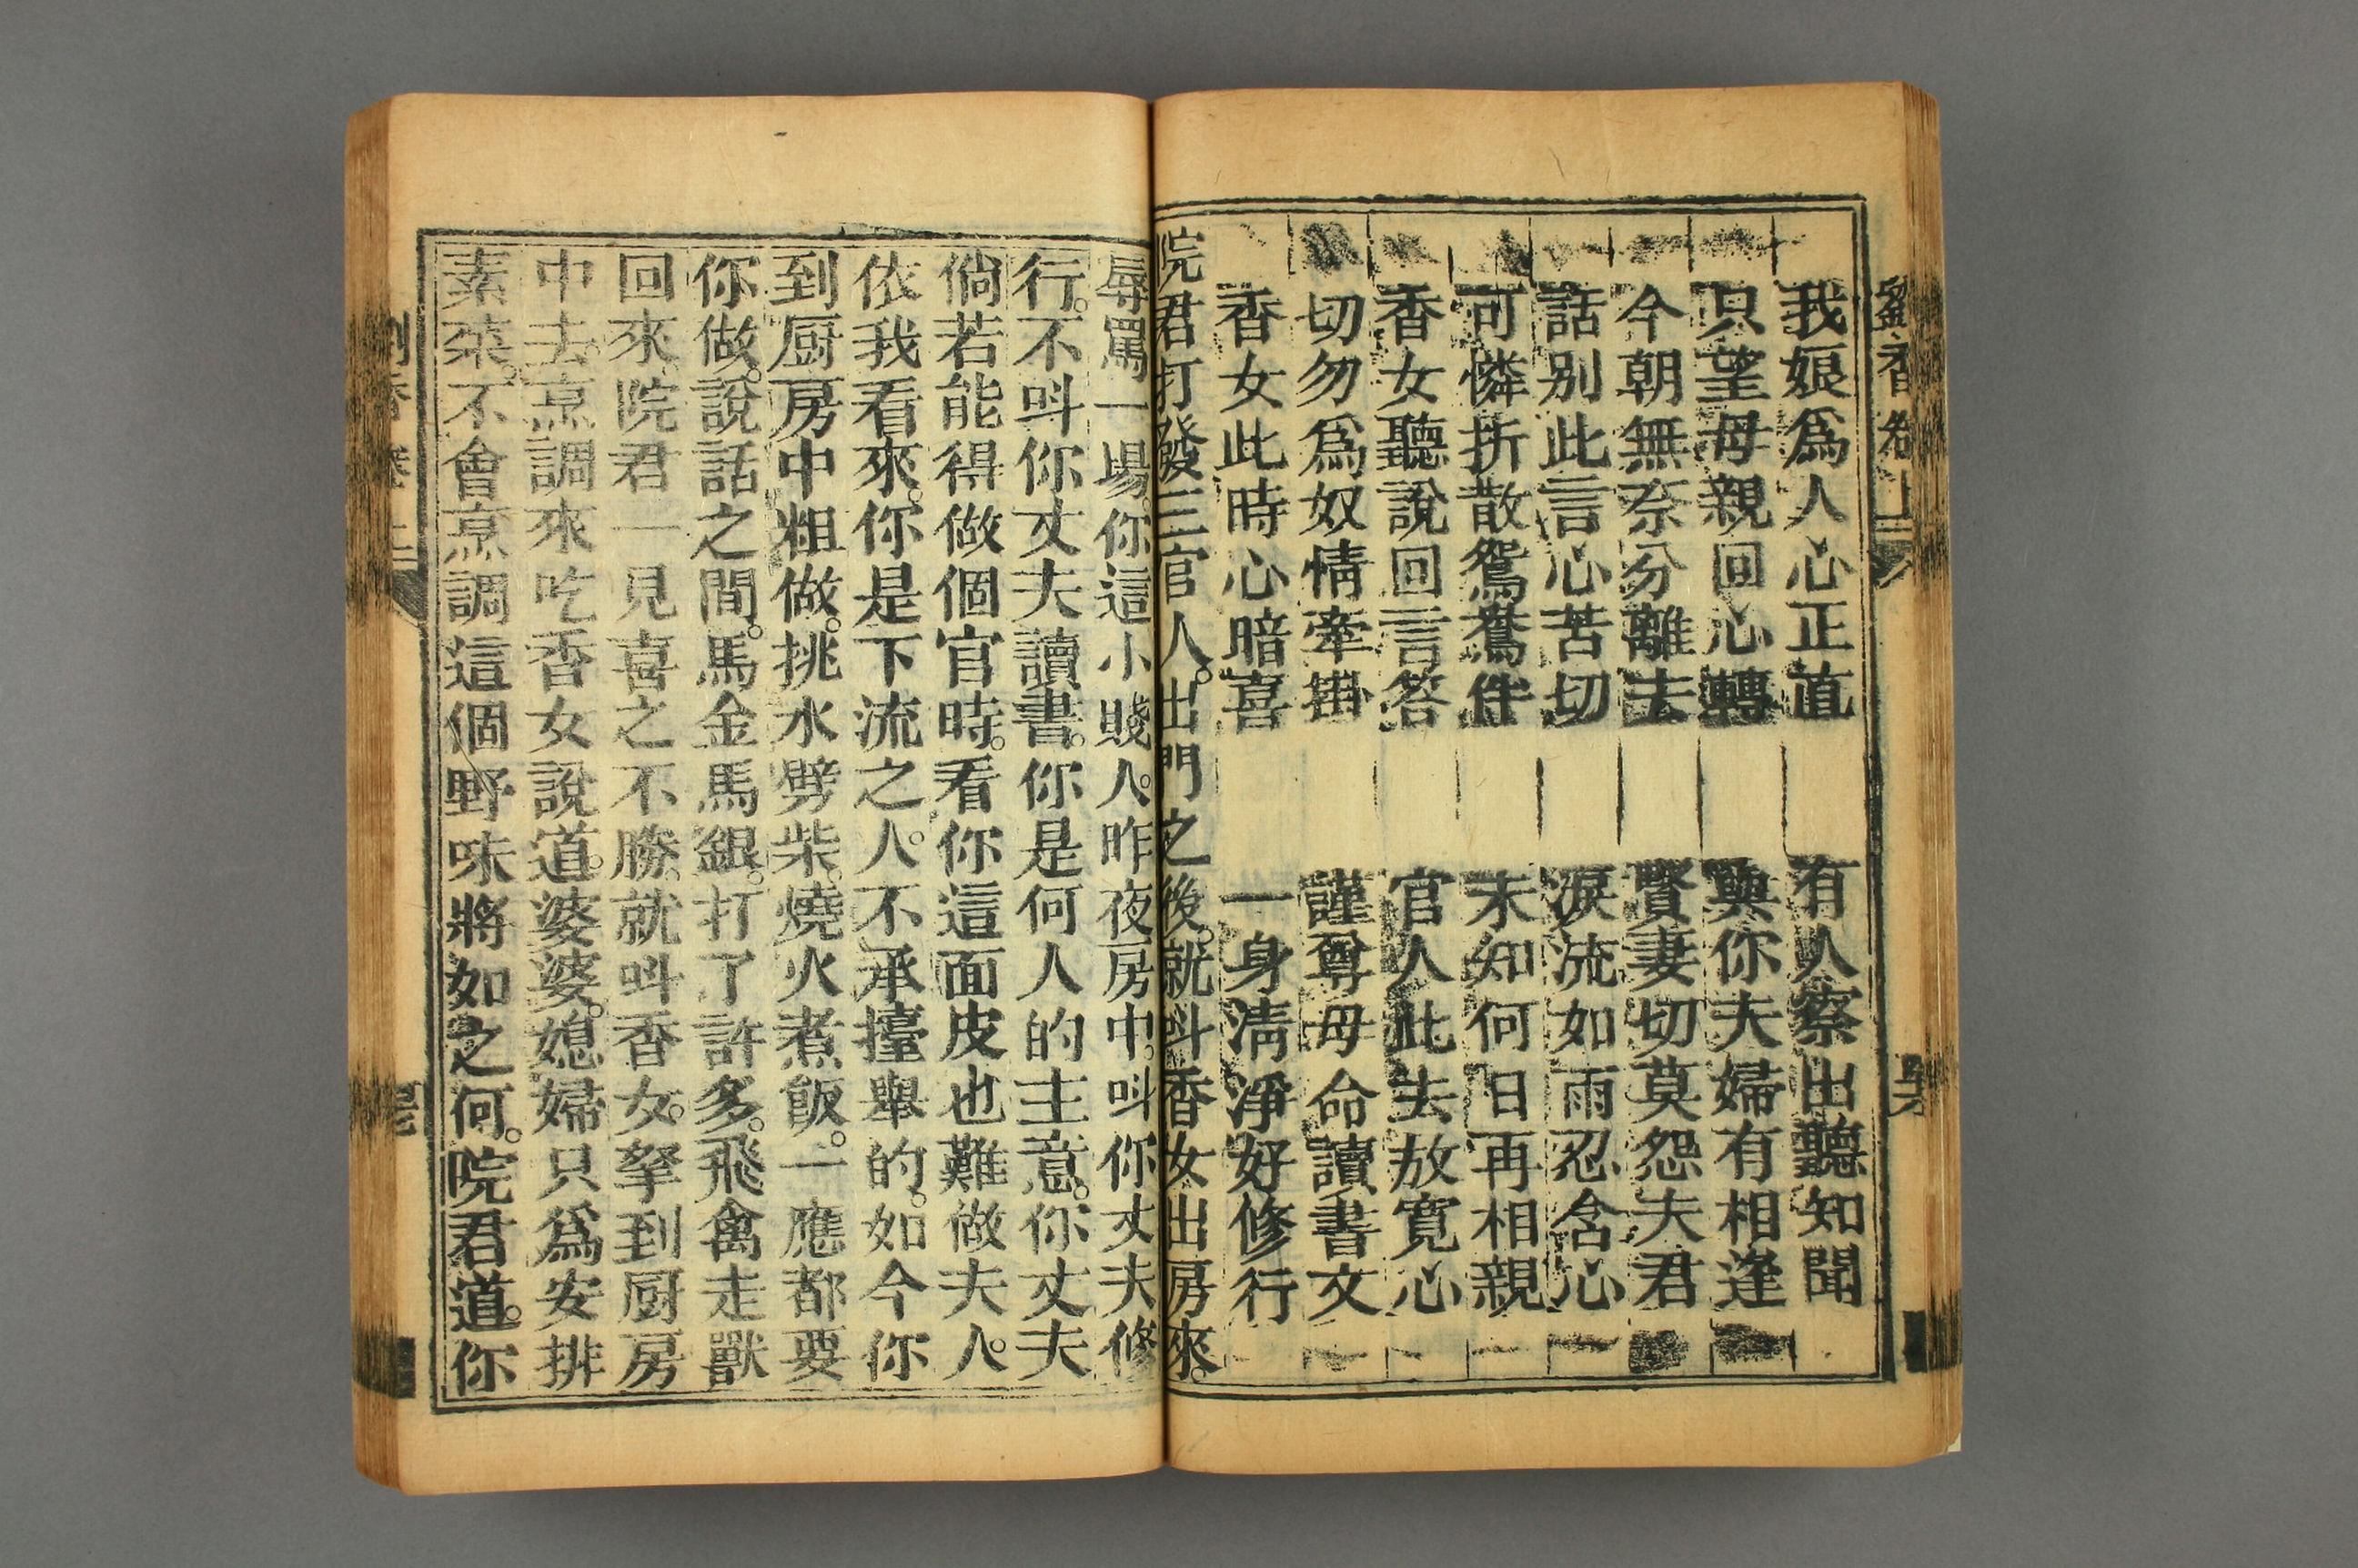 劉香卷上
我娘爲人心正直　有人察出聽知聞
只望母親回心轉　與你夫婦有相逢
今朝無奈分離去　賢妻切莫怨夫君
話别此言心苦切　淚流如雨忍含心
可憐折散鴛鴦伴　未知何日再相親
香女聽說回言答　官人此去放寬心
切勿爲奴情牽掛　謹尊母命讀書文
香女此時心暗喜　一身淸淨好修行
院君打發三官人。出門之後。就呌香女出房來。
辱罵一場。你這小賤人。昨夜房中。呌你丈夫修
行。不呌你丈夫讀書。你是何人的主意。你丈夫
倘若能得做個官時。看你這面皮也難做夫人。
依我看來。你是下流之人。不承擡舉的。如今你
到厨房中粗做。挑水劈柴。燒火煮飯。一應都要
你做。說話之間。馬金馬銀。打了許多。飛禽走獸
回來。院君一見喜之不勝。就呌香女。拏到厨房
中去。烹調來吃香女說道。婆婆。媳婦只爲安排
素菜。不會烹調這個野味將如之何。院君道。你